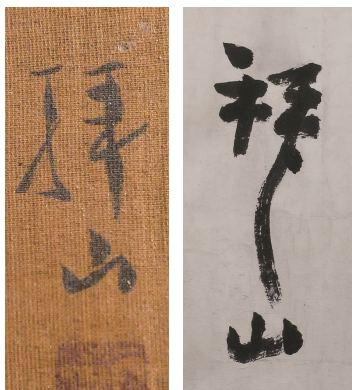 拜山
拜山